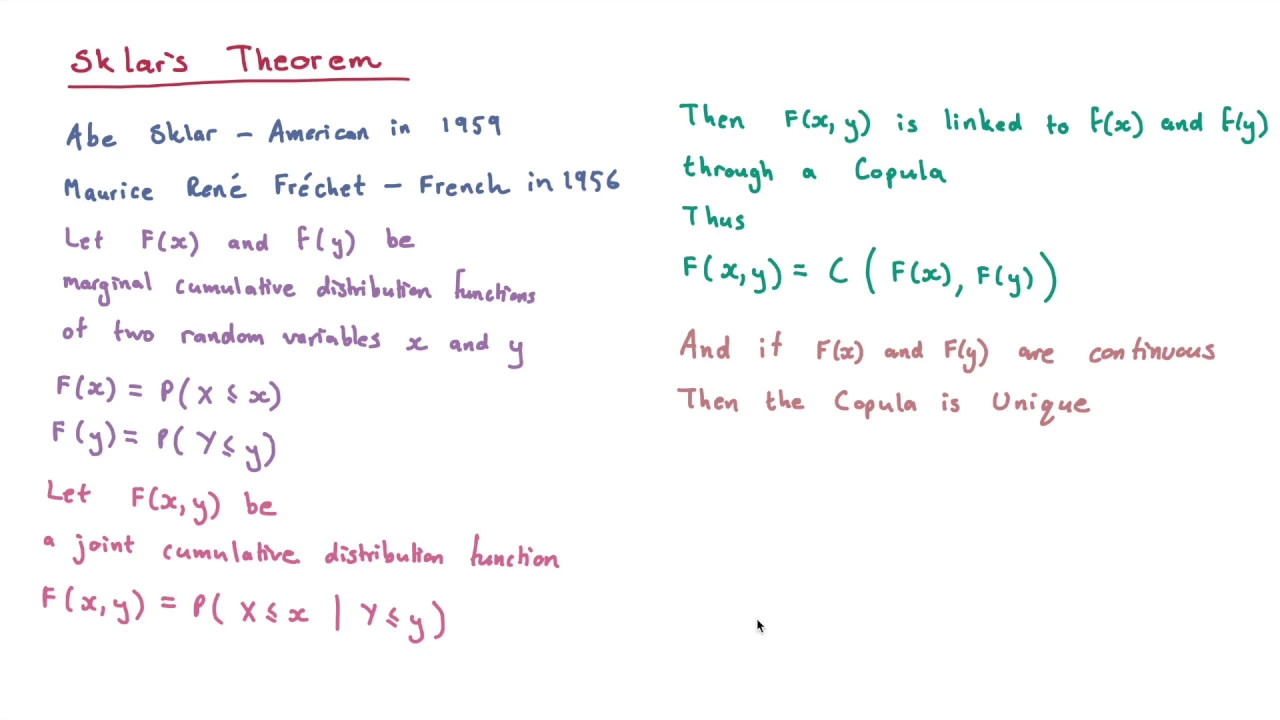 Sklar's Theorem
Abe Sklar - American in 1959
Maurice René Fréchet - French in 1956
Let F(x) and F(y) be
marginal cumulative distribution functions
of two random variables x and y
F(x) = P(X ≤ x)
F(y) = P(Y ≤ y)
Let F(x,y) be
a joint cumulative distribution function
F(x,y) = P(X ≤ x | Y ≤ y)
Then F(x,y) is linked to F(x) and F(y)
through a Copula
Thus
F(x,y) = C(F(x), F(y))
And if F(x) and F(y) are continuous
Then the Copula is Unique